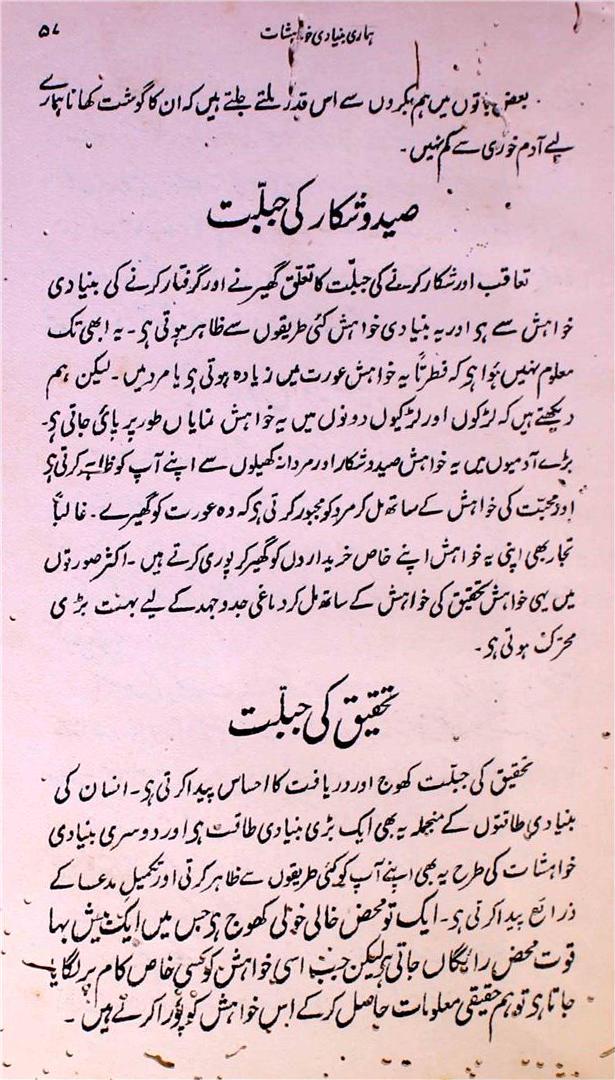 ہماری بنیادی خواہشات ۵۷
بعض باتوں میں ہم بکروں سے اس قدر ملتے جلتے ہیں کہ ان کا گوشت کھانا ہمارے
لیے آدم خوری سے کم نہیں۔
صید و شکار کی جبلّت
تعاقب اور شکار کرنے کی جبلّت کا تعلق گھیرنے اور گرفتار کرنے کی بنیادی
خواہش سے ہی اور یہ بنیادی خواہش کئی طریقوں سے ظاہر ہوتی ہی۔ یہ ابھی تک
معلوم نہیں ہُوا ہی کہ فطرتاً یہ خواہش عورت میں زیادہ ہوتی ہی یا مرد میں۔ لیکن ہم
دیکھتے ہیں کہ لڑکوں اور لڑکیوں دونوں میں یہ خواہش نمایاں طور پر پائی جاتی ہی۔
بڑے آدمیوں میں یہ خواہش صید و شکار اور مردانہ کھیلوں سے اپنے آپ کو ظاہر کرتی ہی
اور محبّت کی خواہش کے ساتھ مل کر مرد کو مجبور کرتی ہی کہ وہ عورت کو گھیرے۔ غالباً
تجار بھی اپنی یہ خواہش اپنے خاص خریداردں کو گھیر کر پوری کرتے ہیں۔ اکثر صورتوں
میں یہی خواہش تحقیق کی خواہش کے ساتھ مل کر دماغی جدوجہد کے لیے بہت بڑی
محرّک ہوتی ہی۔
تحقیق کی جبلّت
تحقیق کی جبلّت کھوج اور دریافت کا احساس پیدا کرتی ہی۔ انسان کی
بنیادی طاقتوں کے منجملہ یہ بھی ایک بڑی بنیادی طاقت ہی اور دوسری بنیادی
خواہشات کی طرح یہ بھی اپنے آپ کو کئی طریقوں سے ظاہر کرتی اور تکمیلِ مدعا کے
ذرائع پیدا کرتی ہی۔ ایک تو محض خالی خولی کھوج ہی جس میں ایک بیش بہا
قوت محض رائیگاں جاتی ہی لیکن جب اسی خواہش کو کسی خاص کام پر لگایا
جاتا ہی تو ہم حقیقی معلومات حاصل کرکے اس خواہش کو پورا کرتے ہیں۔